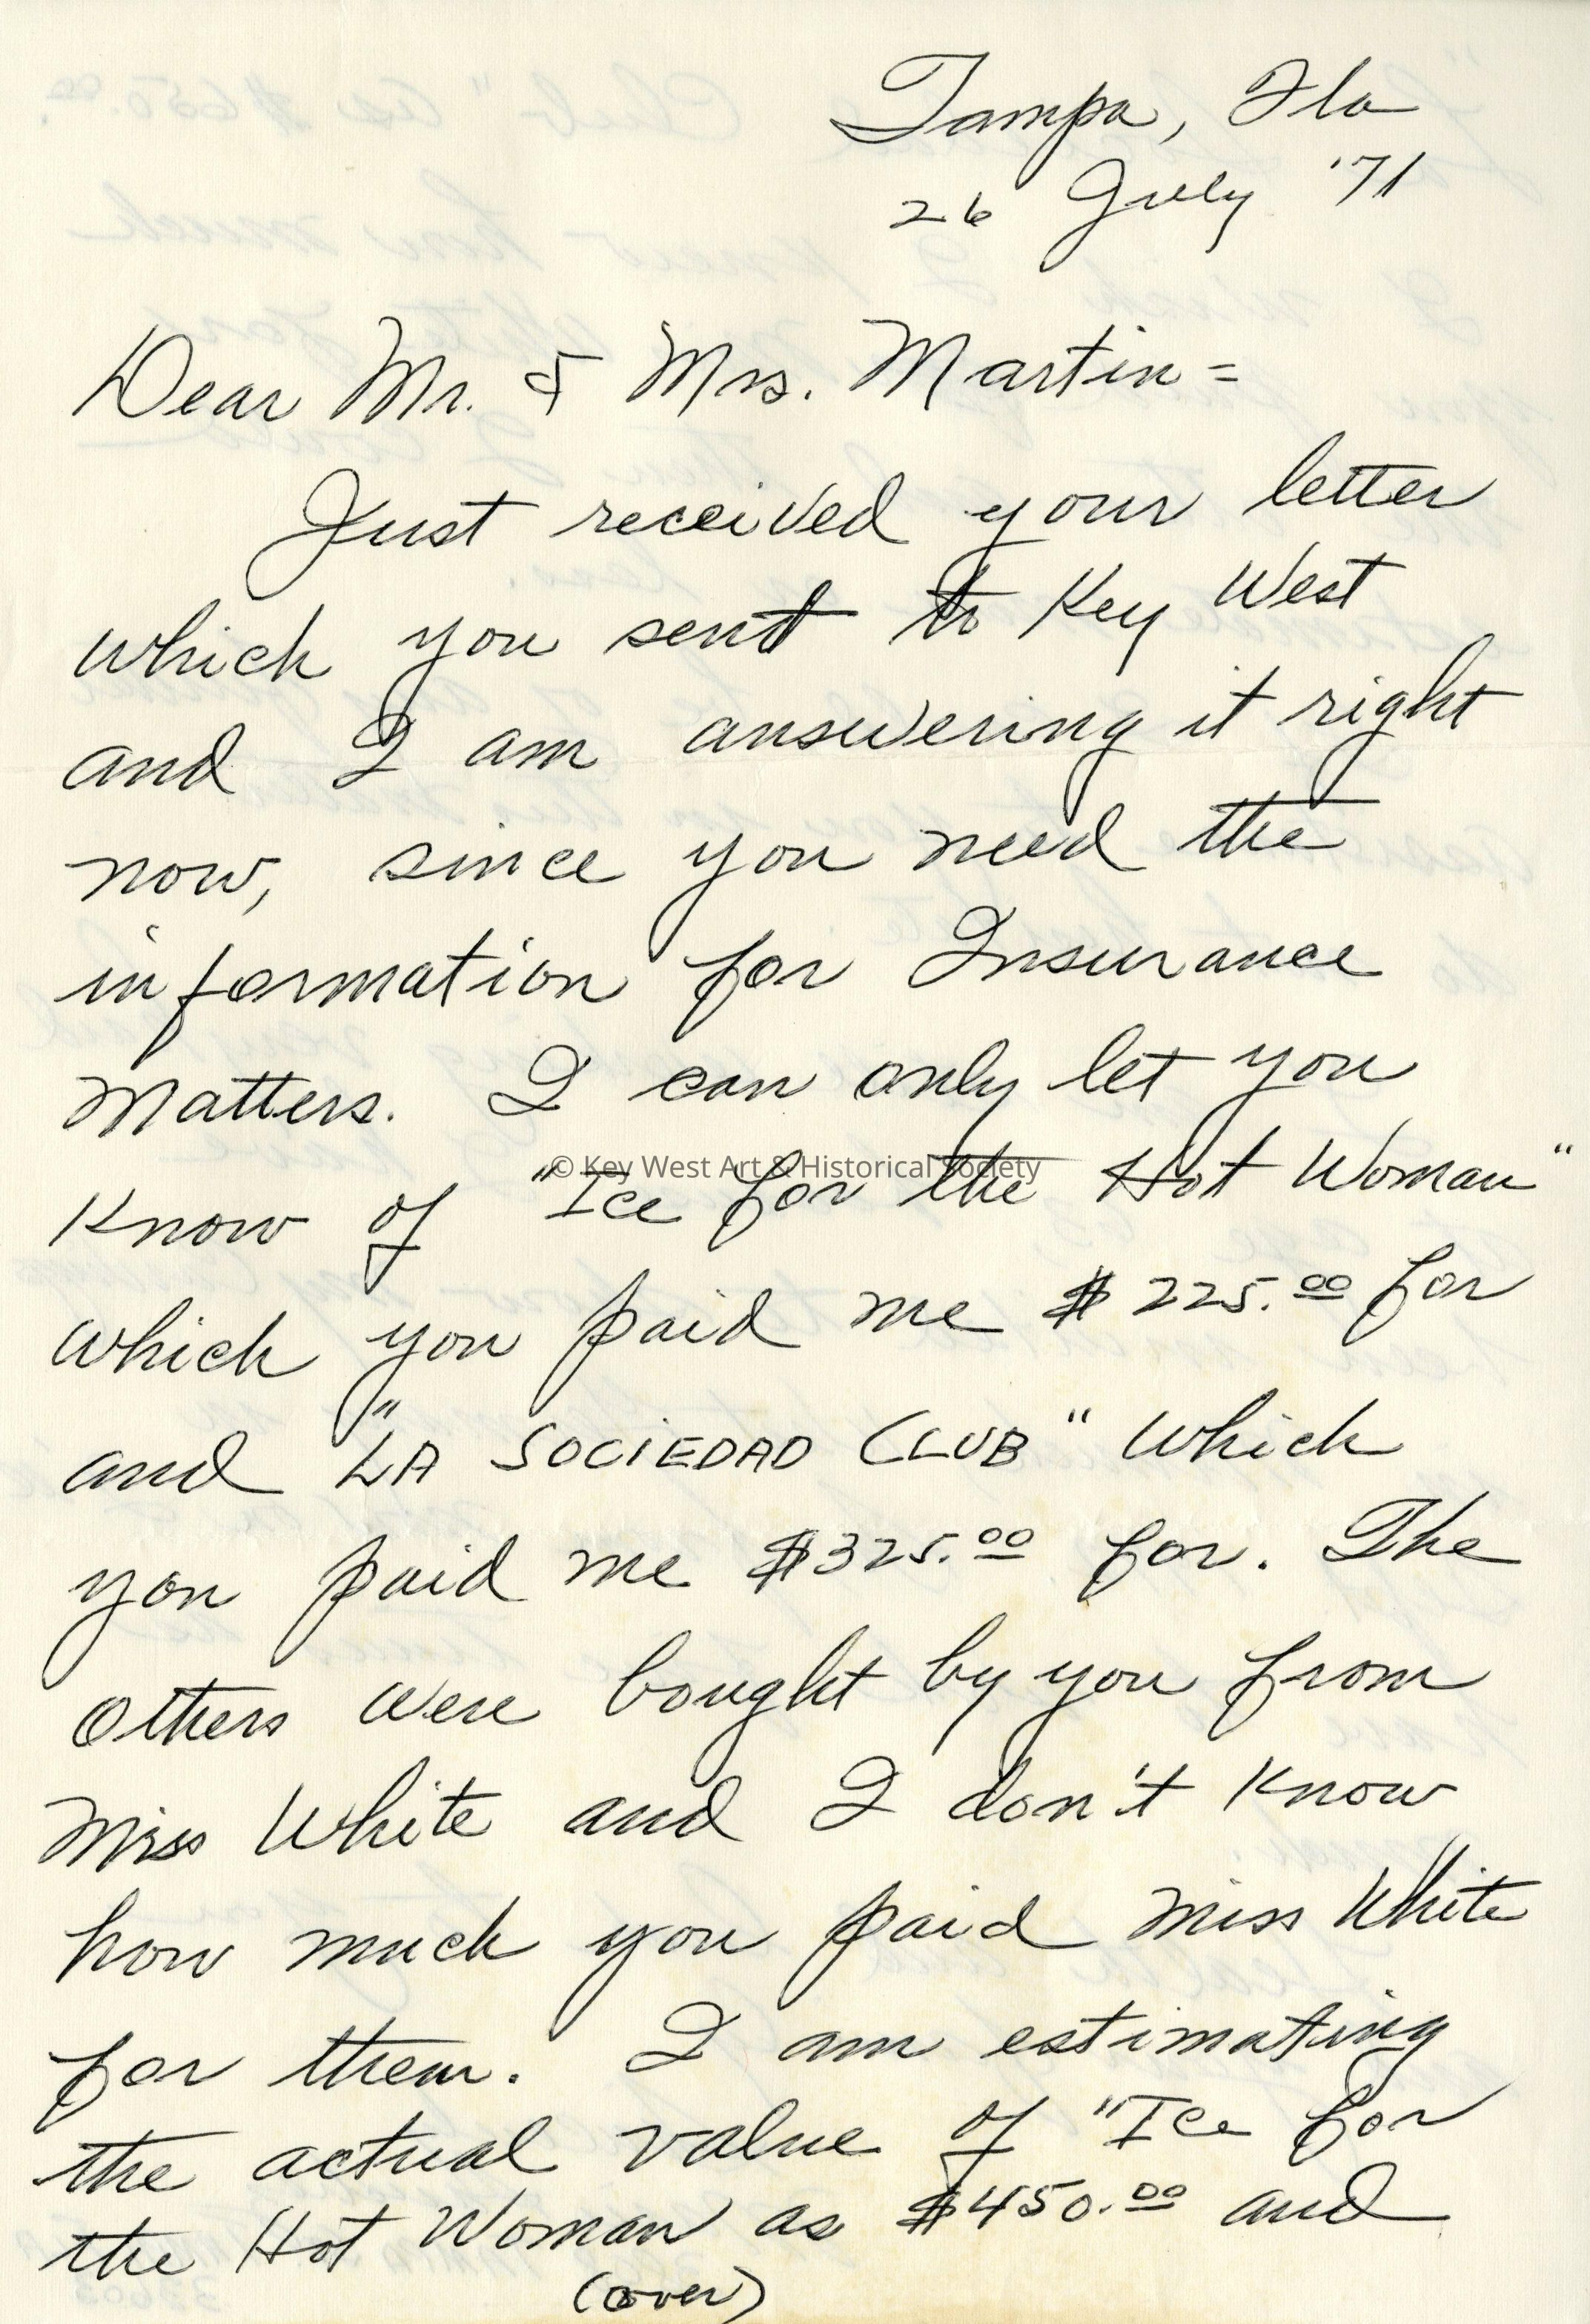 Tampa, Fla
26 July '71
Dear Mr. & Mrs. Martin =
Just received your letter
which you sent to Key West
and I am answering it right
now, since you need the
information for Insurance
Matters. I can only let you
Know of "Ice for the Hot Woman"
© Key West Art & Historical Society
which you paid me $225.00 for
and "LA SOCIEDAD CLUB" which
you paid me $325.00 for. The
others were bought by you from
Miss White and I don't know
how much you paid Miss White
for them. I am estimating
the actual value of "Ice for
the Hot Woman as $450.00 and
(over)